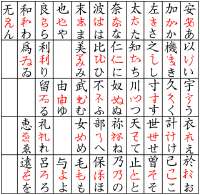 安あ
以い
宇う
衣え
於お
加か
機き
久く
計け
己こ
左さ
之し
寸す
世せ
曽そ
太た
知ち
川つ
天て
止と
奈な
仁に
奴ぬ
祢ね
乃の
波は
比ひ
不ふ
部へ
保ほ
末ま
美み
武む
女め
毛も
也や
由ゆ
与よ
良ら
利り
留る
礼れ
呂ろ
和わ
為ゐ
恵ゑ
遠を
无ん